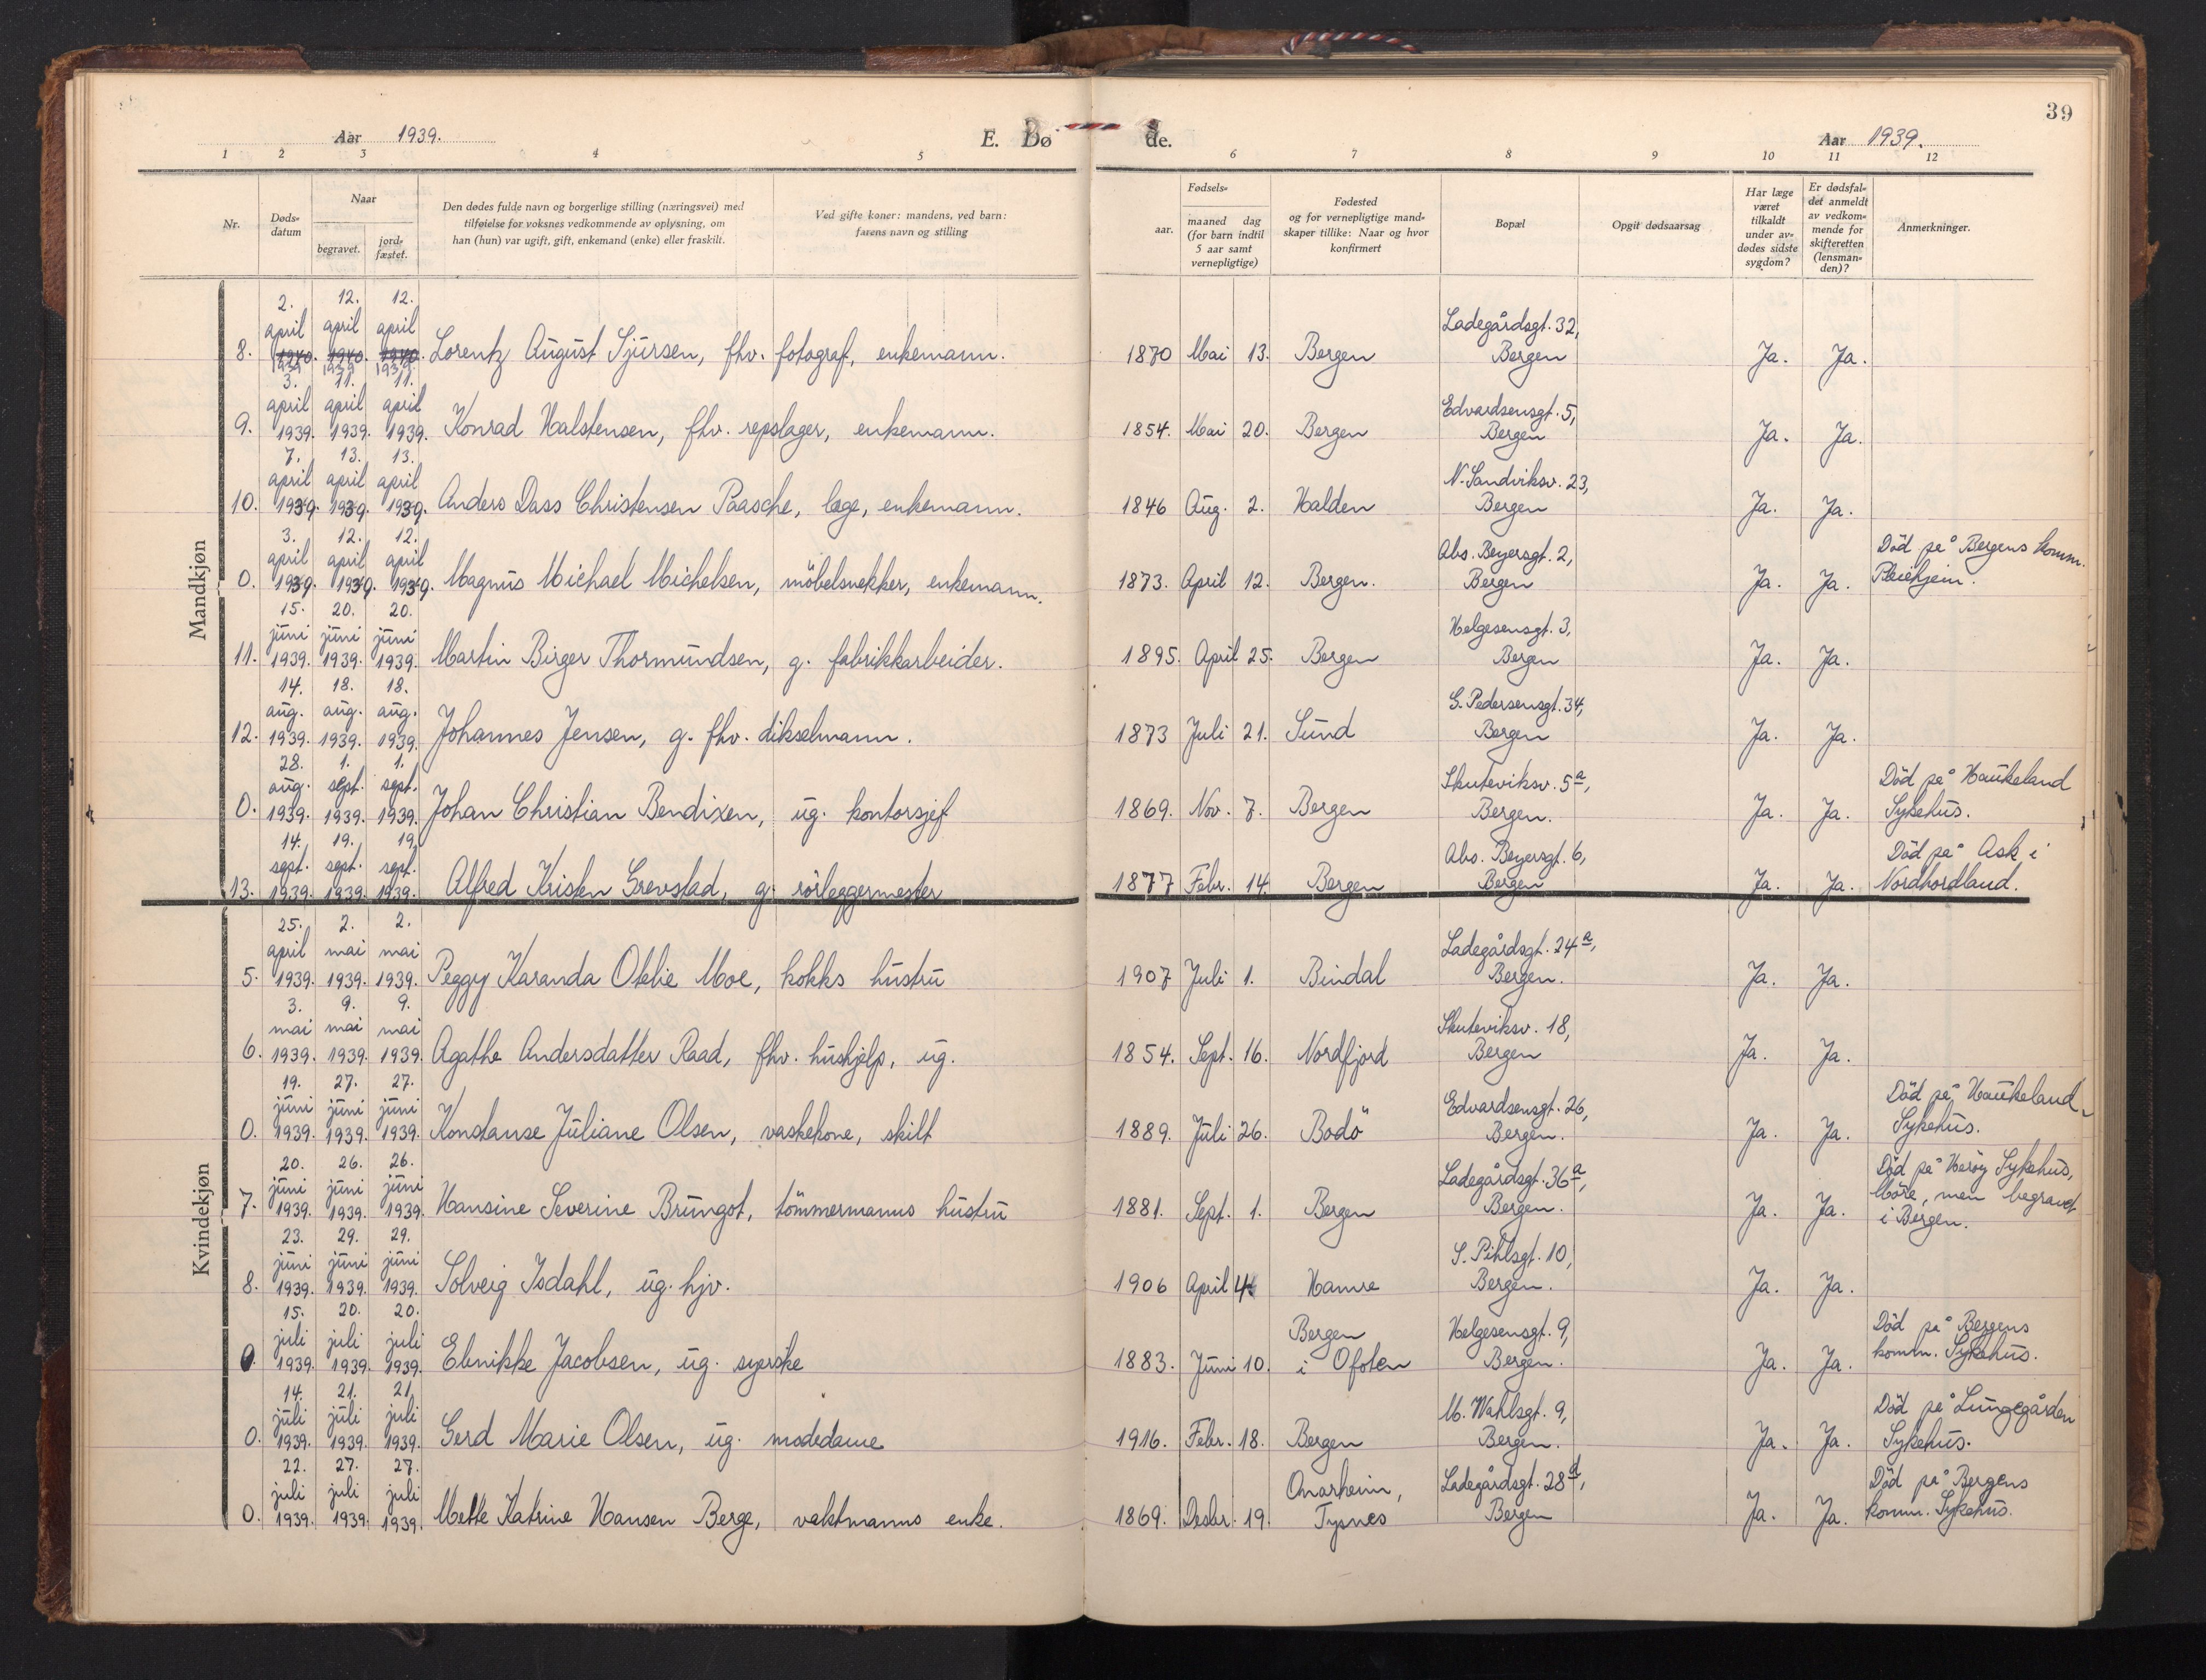 39
Aar 1939.
E. Dø
de.
Aar 1939.
1 2 3 4 5 6 7 8 9 10 11 12
Nr.
Døds-
datum
Naar
begravet.
jord-
fæstet.
Den dødes fulde navn og borgerlige stilling (næringsvei) med
tilføielse for voksnes vedkommende av oplysning, om
han (hun) var ugift, gift, enkemand (enke) eller fraskilt.
Ved gifte koner: mandens, ved barn:
farens navn og stilling
Fødsels-
aar.
maaned dag
(for barn indtil
5 aar samt
vernepligtige)
Fødested
og for vernepligtige mand-
skaper tillike: Naar og hvor
konfirmert
Bopæl
Opgit dødsaarsag
Har læge
været
tilkaldt
under av-
dødes sidste
sygdom?
Er dødsfal-
det anmeldt
av vedkom-
mende for
skifteretten
(lensman-
den)?
Anmerkninger.
Mandkjøn
2. 12. 12.
april april april Ladegårdsgt. 32,
8. 1940. 1940. 1940. Lorentz August Sjursen, fhv. fotograf, enkemann. 1870 Mai 13. Bergen Bergen Ja. Ja.
1939 1939 1939
3. 11. 11.
april april april Edvardsensgt. 5,
9. 1939. 1939. 1939. Konrad Halstensen, fhv. repslager, enkemann. 1854. Mai 20. Bergen Bergen Ja. Ja.
7. 13. 13.
april april april N. Sandviksv. 23,
10. 1939. 1939. 1939. Anders Dass Christensen Paasche, læge, enkemann. 1846 Aug. 2. Halden Bergen Ja. Ja.
3. 12. 12.
april april april Abs. Beyersgt. 2, Död på Bergens komm.
0. 1939. 1939. 1939. Magnus Michael Michelsen, möbelsnekker, enkemann. 1873. April 12. Bergen. Bergen Ja. Ja. Pleiehjem.
15. 20. 20.
juni juni juni Helgesensgt. 3,
11. 1939. 1939. 1939. Martin Birger Thormundsen, g. fabrikkarbeider. 1895. April 25. Bergen Bergen Ja. Ja.
14. 18. 18.
aug. aug. aug. G. Pedersensgt. 34,
12. 1939. 1939. 1939. Johannes Jensen, g. fhv. dikselmann. 1873 Juli 21. Sund Bergen Ja. Ja.
28. 1. 1.
aug. sept. sept. Skuteviksv. 5a, Död på Haukeland
0. 1939. 1939. 1939. Johan Christian Bendixen, ug. kontorsjef 1869. Nov. 7. Bergen Bergen. Ja. Ja. Sykehus.
14. 19. 19.
sept. sept. sept. Abs. Beyersgt. 6, Död på Ask i
13. 1939. 1939. 1939. Alfred Kristen Grevstad, g. rörleggermester 1877 Febr. 14. Bergen Bergen Ja. Ja. Nordhordland.
Kvindekjøn
25. 2. 2.
april mai mai Ladegårdsgt. 24a,
5. 1939. 1939. 1939. Peggy Karanda Otelie Moe, kokks hustru 1907 Juli 1. Bindal Bergen. Ja. Ja.
3. 9. 9.
mai mai mai Skuteviksv. 18,
6. 1939. 1939. 1939. Agathe Andersdatter Raad, fhv. hushjelp, ug. 1854. Sept. 16. Nordfjord Bergen Ja. Ja.
19. 27. 27.
juni juni juni Edvardsensgt. 26, Död på Haukeland
0. 1939. 1939. 1939. Konstanse Juliane Olsen, vaskekone, skilt 1889. Juli 26. Bodö Bergen. Ja. Ja. Sykehus.
20. 26. 26.
juni juni juni Ladegårdsgt. 36a, Död på Heröy Sykehus,
7. 1939. 1939. 1939. Hansine Severine Brungot, tömmermanns hustru 1881. Sept. 1. Bergen Bergen. Ja. Ja. Möre, men begravet
i Bergen.
23. 29. 29.
juni juni juni S. Pihlsgt. 10,
8. 1939. 1939. 1939. Solveig Isdahl, ug. hjv. 1906 April 4. Hamre Bergen. Ja. Ja.
15. 20. 20.
juli juli juli Bergen Helgesensgt. 9, Död på Bergens
0. 1939. 1939. 1939. Ebnikke Jacobsen, ug. syerske 1883. Juni 10. i Ofoten Bergen. Ja. Ja. komm. Sykehus.
14. 21. 21.
juli juli juli M. Wahlsgt. 9, Död på Lungegården
0. 1939. 1939. 1939. Gerd Marie Olsen, ug. modedame 1916. Febr. 18. Bergen Bergen. Ja. Ja. Sykehus.
22. 27. 27.
juli juli juli Onarheim, Ladegårdsgt. 28d, Död på Bergens
0. 1939. 1939. 1939. Mette Katrine Hansen Berge, vaktmanns enke. 1869. Desbr. 19. Tysnes Bergen Ja. Ja. komm. Sykehus.